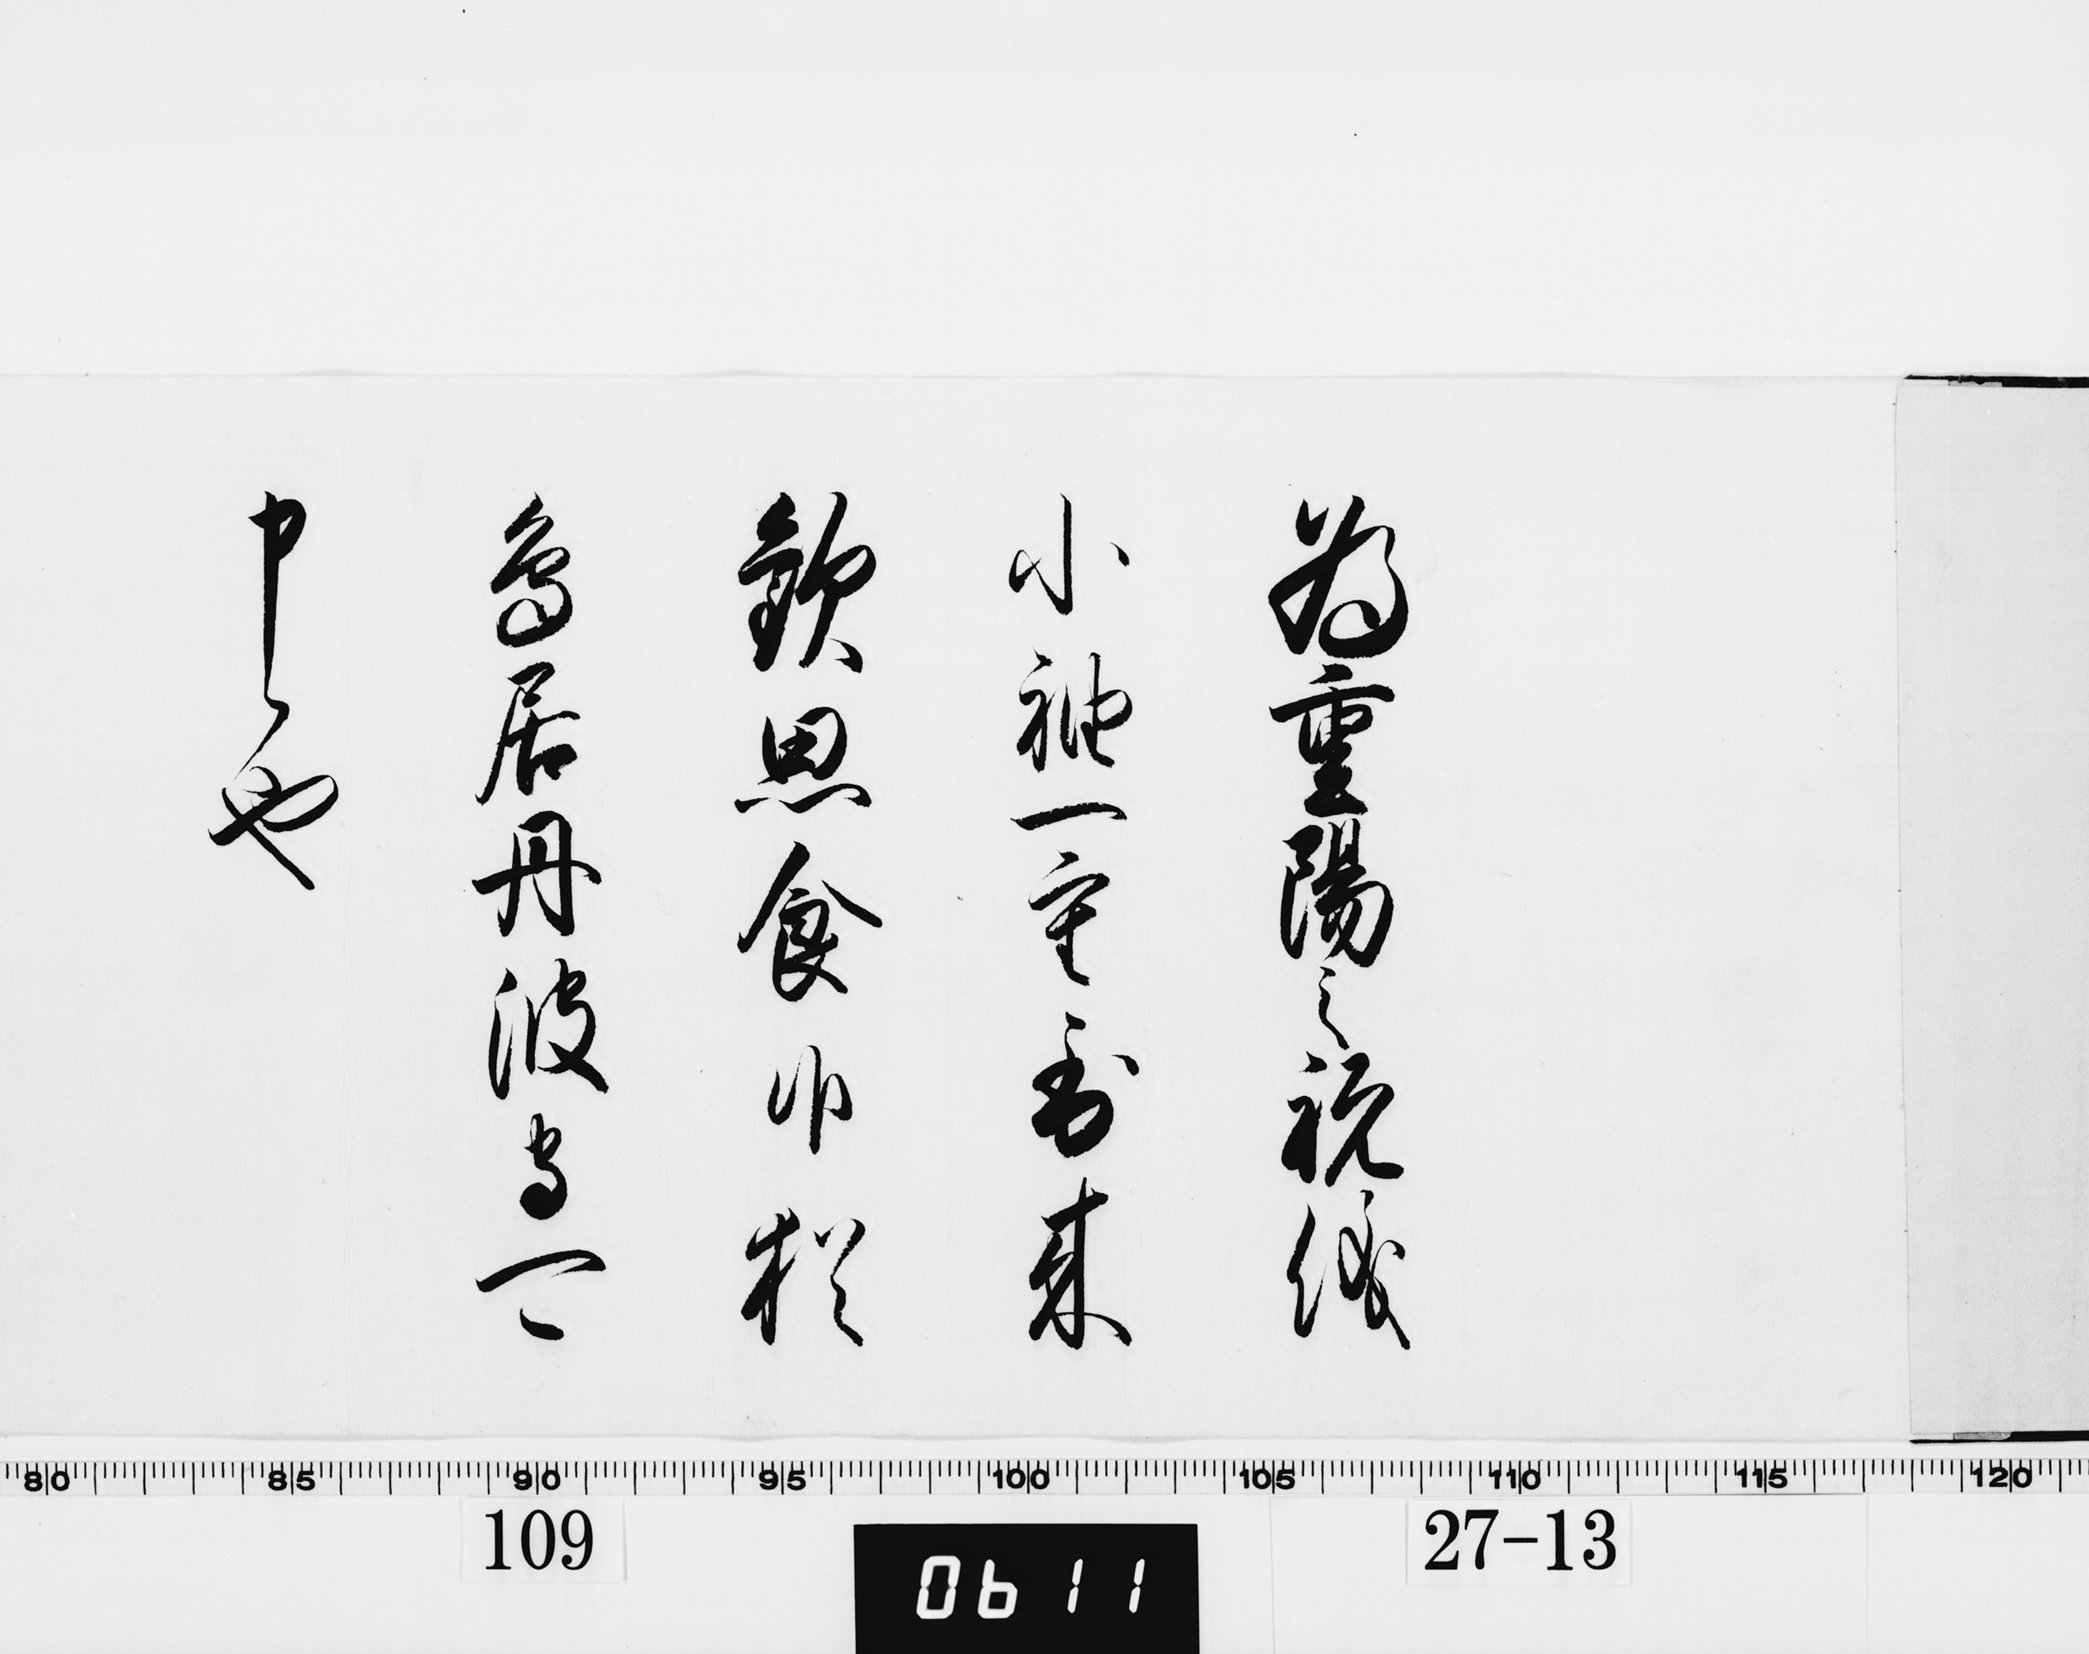 為重陽之祝儀
小袖一重到来
歓思食候猶
鳥居丹波守可
申候也
80 85 90 95 100 105 110 115 120
109
0611
27-13